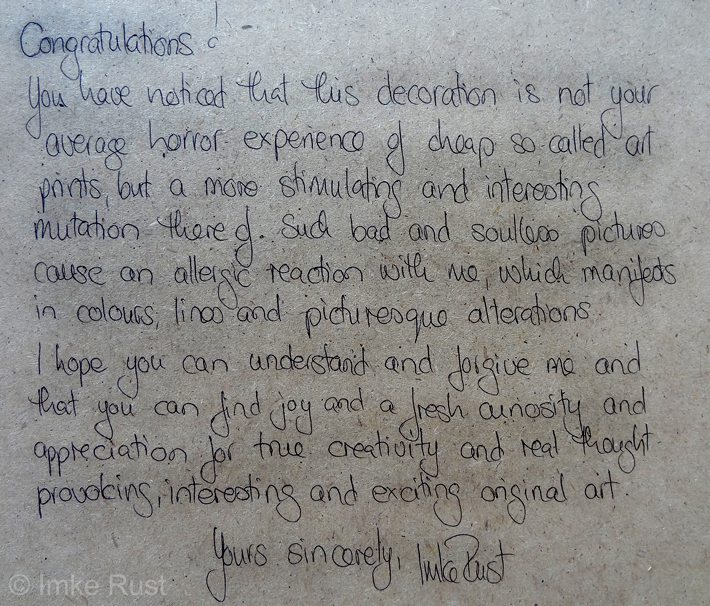 Congratulations!
You have noticed that this decoration is not your
average horror experience of cheap so-called art
prints, but a more stimulating and interesting
mutation there of. Such bad and soulless pictures
cause an allergic reaction with me, which manifests
in colours, lines and picturesque alterations.
I hope you can understand and forgive me and
that you can find joy and a fresh curiosity and
appreciation for true creativity and real thought-
provoking, interesting and exciting original art.
Yours sincerely, Imke Rust
© Imke Rust